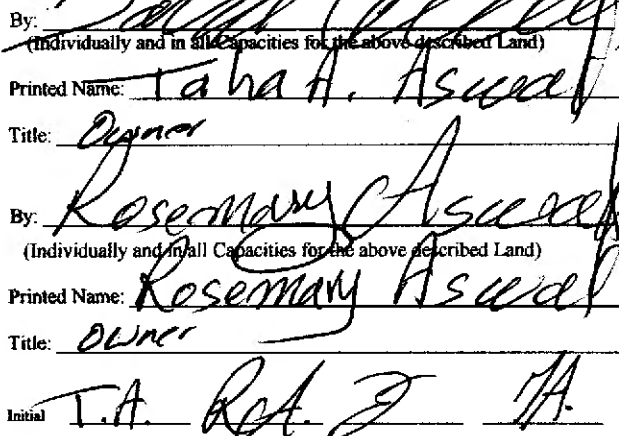 By:
(Individually and in all Capacities for the above described Land)
Printed Name: Taha A. Aswad
Title: Owner
By: Rosemary Aswad
(Individually and in all Capacities for the above described Land)
Printed Name: Rosemary Aswad
Title: Owner
Initial T.A. R.A.